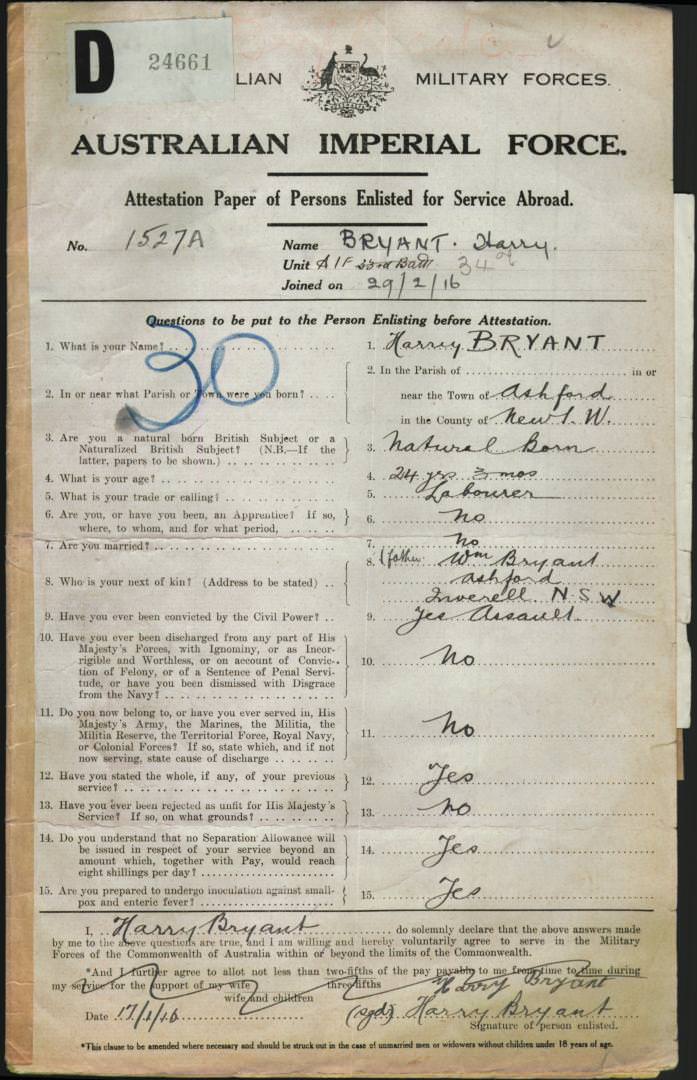 D 24661
LIAN MILITARY FORCES.
AUSTRALIAN IMPERIAL FORCE.
Attestation Paper of Persons Enlisted for Service Abroad.
No. 1527A
Name BRYANT. Harry.
Unit AIF 33rd Batt 34th
Joined on 29/2/16
Questions to be put to the Person Enlisting before Attestation.
30
1. What is your Name? 1. Harry BRYANT
2. In or near what Parish or Town were you born? 2. In the Parish of in or
near the Town of Ashford
in the County of New S. W.
3. Are you a natural born British Subject or a
Naturalized British Subject? (N.B.—If the
latter, papers to be shown.) 3. Natural Born
4. What is your age? 4. 24 yrs 3 mos
5. What is your trade or calling? 5. Labourer
6. Are you, or have you been, an Apprentice? If so,
where, to whom, and for what period, 6. No
7. Are you married? 7. No
8. Who is your next of kin? (Address to be stated) 8. (father Wm Bryant
Ashford
Inverell N S W
9. Have you ever been convicted by the Civil Power? 9. Yes Assault
10. Have you ever been discharged from any part of His
Majesty's Forces, with Ignominy, or as Incor-
rigible and Worthless, or on account of Convic-
tion of Felony, or of a Sentence of Penal Servi-
tude, or have you been dismissed with Disgrace
from the Navy? 10. No
11. Do you now belong to, or have you ever served in, His
Majesty's Army, the Marines, the Militia, the
Militia Reserve, the Territorial Force, Royal Navy,
or Colonial Forces? If so, state which, and if not
now serving, state cause of discharge 11. No
12. Have you stated the whole, if any, of your previous
service? 12. Yes
13. Have you ever been rejected as unfit for His Majesty's
Service? If so, on what grounds? 13. No
14. Do you understand that no Separation Allowance will
be issued in respect of your service beyond an
amount which, together with Pay, would reach
eight shillings per day? 14. Yes
15. Are you prepared to undergo inoculation against small-
pox and enteric fever? 15. Yes
I, Harry Bryant do solemnly declare that the above answers made
by me to the above questions are true, and I am willing and hereby voluntarily agree to serve in the Military
Forces of the Commonwealth of Australia within or beyond the limits of the Commonwealth.
*And I further agree to allot not less than two-fifths of the pay payable to me from time to time during
my service for the support of my wife three-fifths Harry Bryant
wife and children
Date 17/1/16 (sgd) Harry Bryant
Signature of person enlisted.
*This clause to be amended where necessary and should be struck out in the case of unmarried men or widowers without children under 18 years of age.